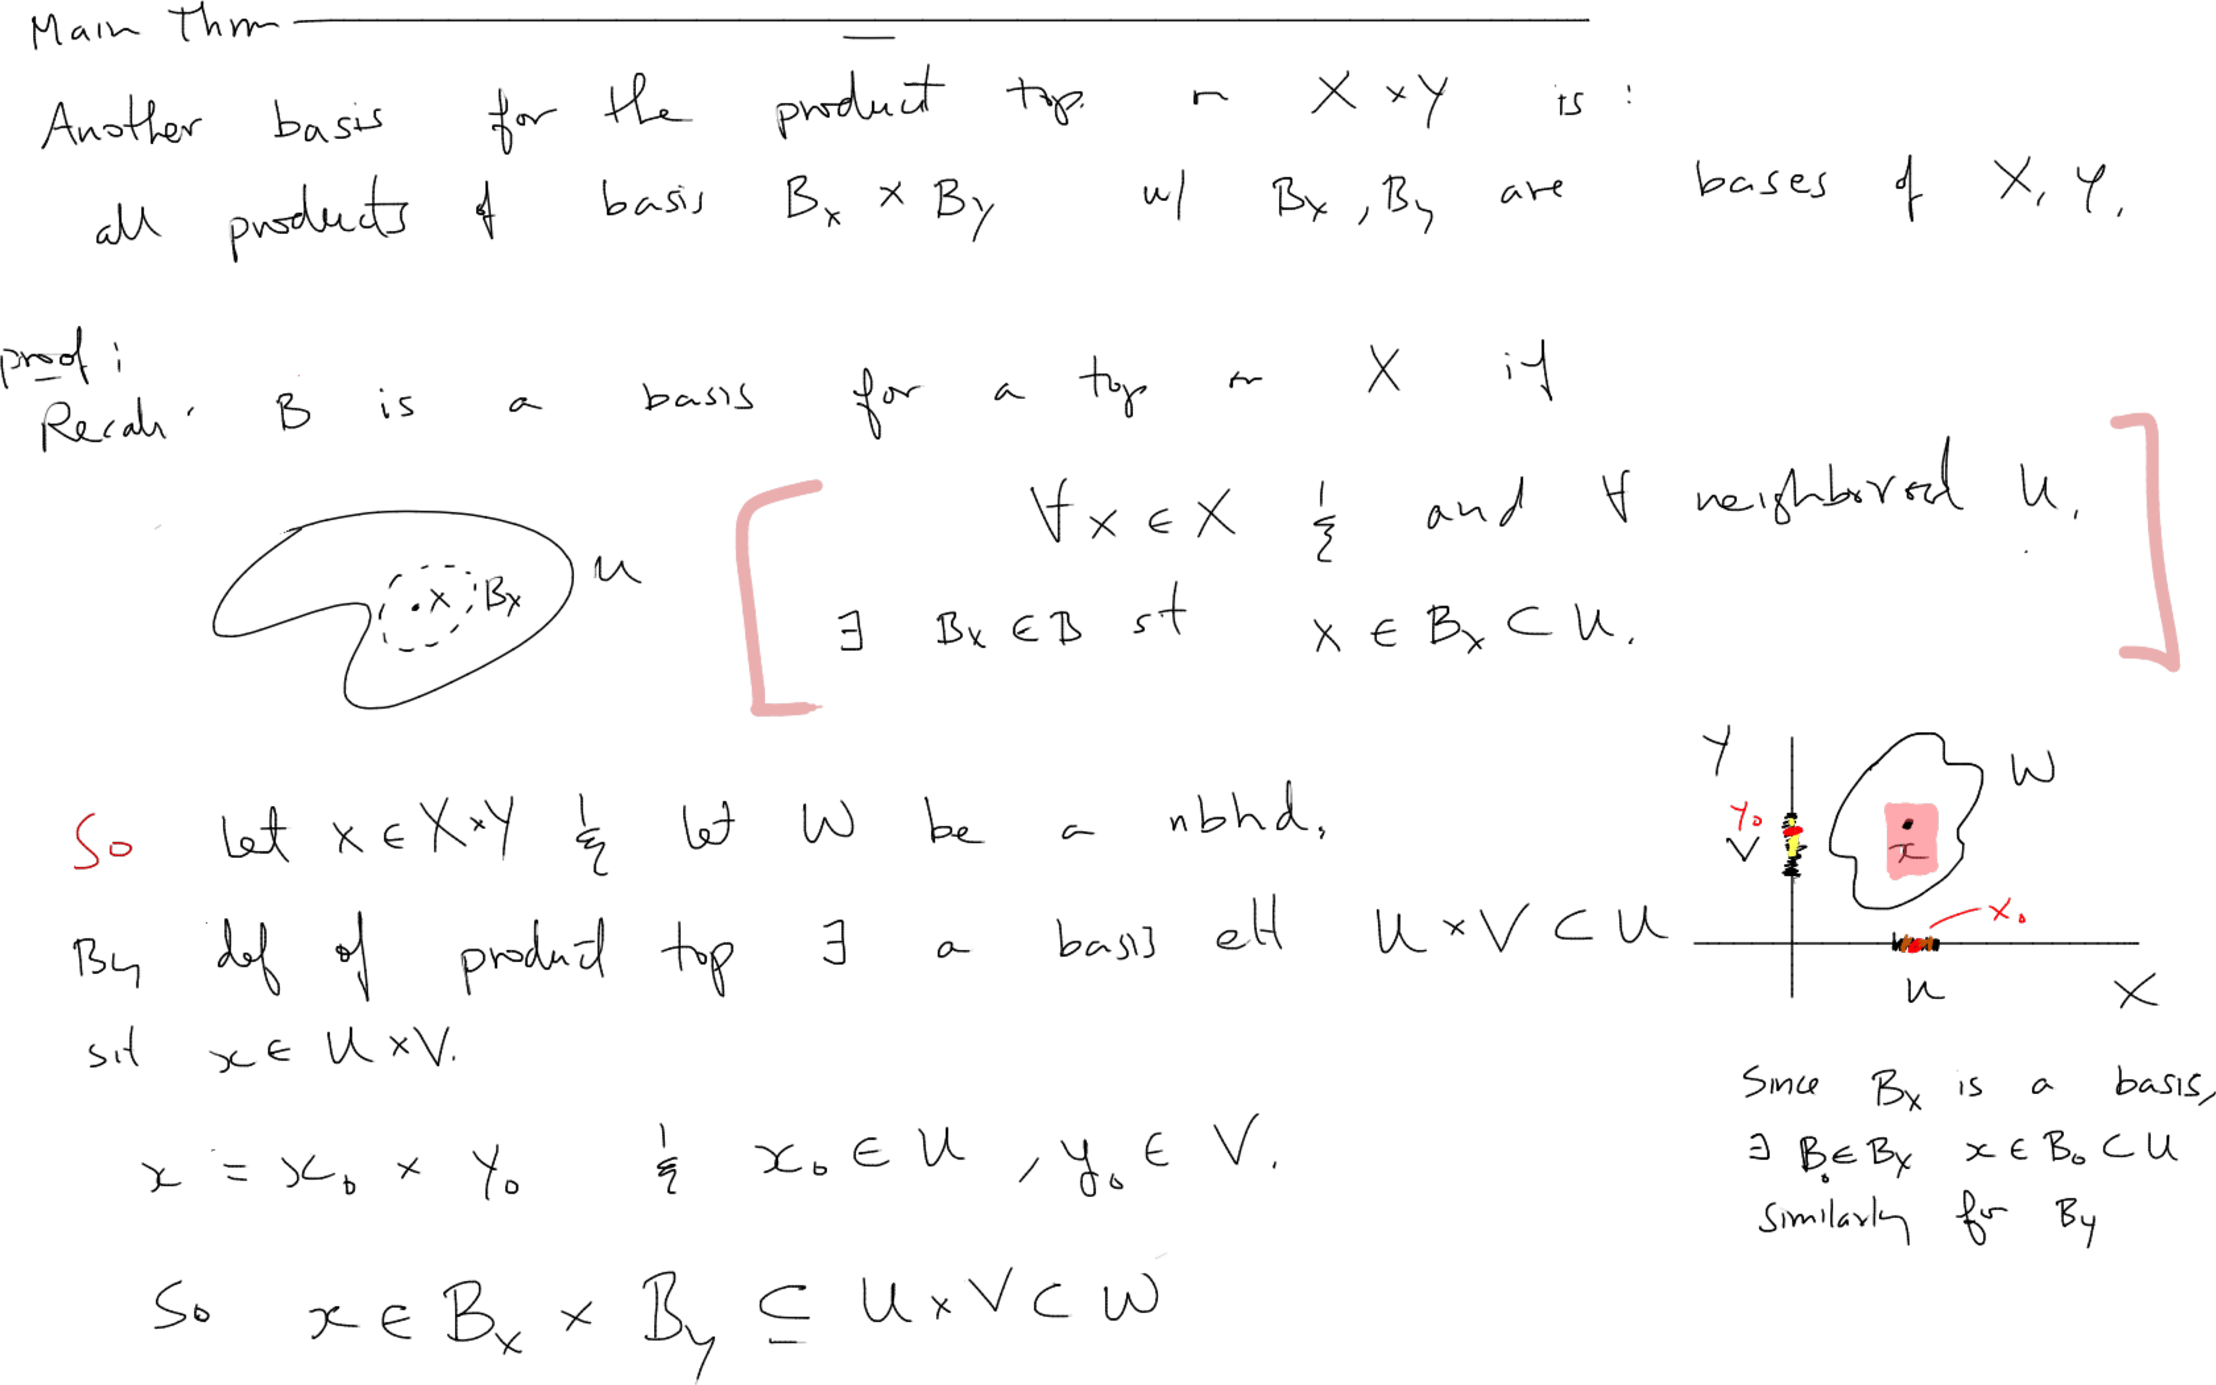 Main Thm
Another basis for the product top. on X × Y is :
all products of basis Bx × By w/ Bx , By are bases of X, Y.
proof :
Recall. B is a basis for a top on X if
∀ x ∈ X & and ∀ neighborood U.
∃ Bx ∈ B st x ∈ Bx ⊂ U.
U
x Bx
So let x ∈ X×Y & let W be a nbhd.
By def of product top ∃ a basis elt U × V ⊂ U
st x ∈ U × V.
x = x₀ × y₀ & x₀ ∈ U , y₀ ∈ V.
So x ∈ Bx × By ⊆ U × V ⊂ W
Y W
y₀
V x
x₀
U X
Since Bx is a basis,
∃ B₀ ∈ Bx x ∈ B₀ ⊂ U
similarly for By